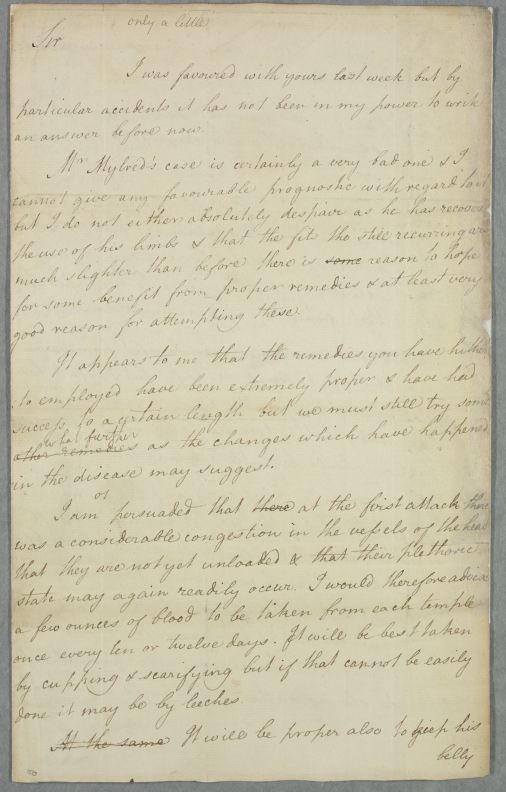 only a little
Sir
I was favoured with yours last week but by
particular accidents it has not been in my power to write
an answer before now.
Mr Mylred's case is certainly a very bad one & I
cannot give any favourable prognostic with regard to it
but I do not either absolutely despair as he has recover
the use of his limbs & that the fit tho still recurring are
much slighter than before there is some reason to hope
for some benefit from proper remedies & at least very
good reason for attempting these
It appears to me that the remedies you have hither
to employed have been extremely proper & have had
success to a certain length but we must still try some
what further
other remedies as the changes which have happened
in the disease may suggest.
I am persuaded that there at the first attack there
was a considerable congestion in the vessels of the head
that they are not yet unloaded & that their plethorick
state may again readily occur. I would therefore advice
a few ounces of blood to be taken from each temple
once every ten or twelve days. It will be best taken
by cupping & scarifying but if that cannot be easily
done it may be by leeches
At the same It will be proper also to keep his
belly